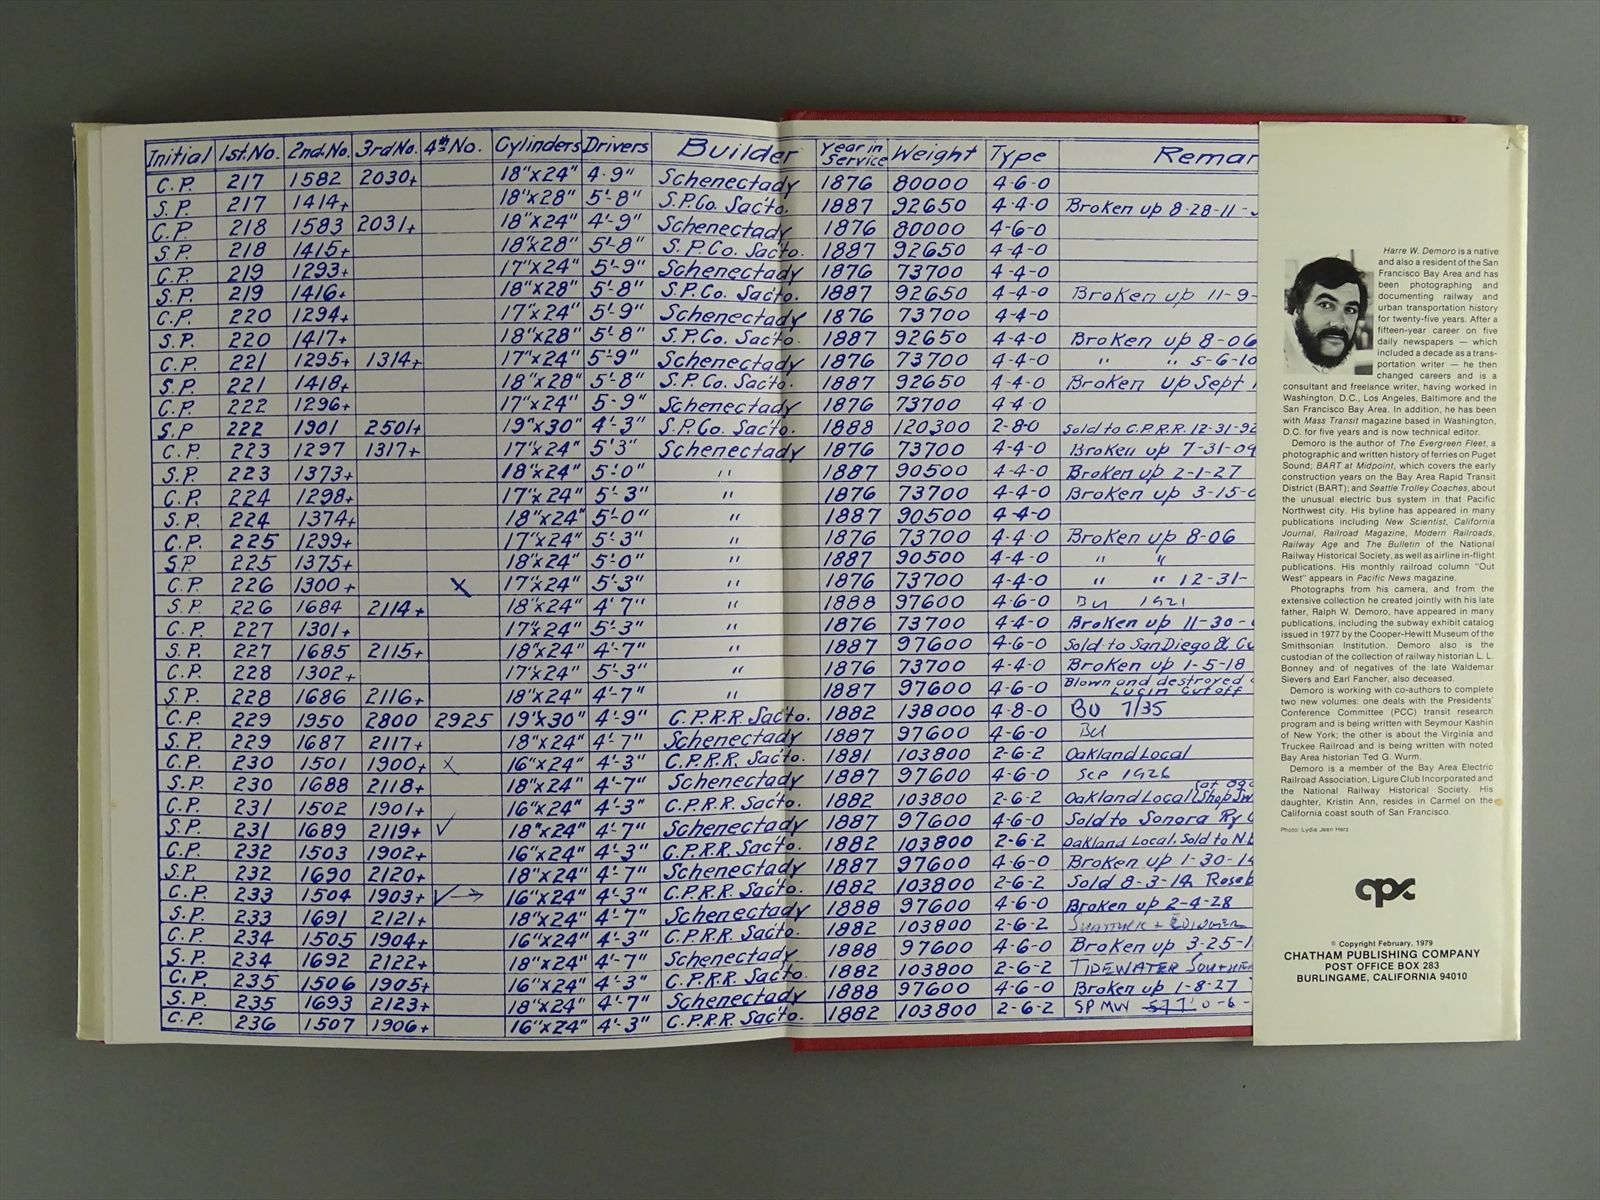 Initial 1st.No. 2nd.No. 3rd.No. 4th No. Cylinders Drivers Builder Year in Service Weight Type
C.P. 217 1582 2030+ 18"x24" 4-9" Schenectady 1876 80000 4-6-0
S.P. 217 1414+ 18"x28" 5'-8" S.P.Co. Sac'to. 1887 92650 4-4-0 Broken up 8-28-11
C.P. 218 1583 2031+ 18"x24" 4'-9" Schenectady 1876 80000 4-6-0
S.P. 218 1415+ 18"x28" 5'-8" S.P.Co. Sac'to. 1887 92650 4-4-0
C.P. 219 1293+ 17"x24" 5'-9" Schenectady 1876 73700 4-4-0
S.P. 219 1416+ 18"x28" 5'-8" S.P.Co. Sac'to. 1887 92650 4-4-0 Broken up 11-9-
C.P. 220 1294+ 17"x24" 5'-9" Schenectady 1876 73700 4-4-0
S.P. 220 1417+ 18"x28" 5'-8 S.P.Co. Sac'to. 1887 92650 4-4-0 Broken up 8-06
C.P. 221 1295+ 1314+ 17"x24" 5'-9" Schenectady 1876 73700 4-4-0 " " 5-6-10
S.P. 221 1418+ 18"x28" 5'-8" S.P.Co. Sac'to. 1887 92650 4-4-0 Broken up Sept
C.P. 222 1296+ 17"x24" 5-9" Schenectady 1876 73700 4-4-0
S.P 222 1901 2501+ 19"x30" 4'-3" S.P.Co. Sac'to. 1888 120300 2-8-0 Sold to C.P.R.R. 12-31-92
C.P. 223 1297 1317+ 17"x24" 5'3" Schenectady 1876 73700 4-4-0 Broken up 7-31-09
S.P. 223 1373+ 18"x24" 5'-0" " 1887 90500 4-4-0 Broken up 2-1-27
C.P. 224 1298+ 17"x24" 5'-3" " 1876 73700 4-4-0 Broken up 3-15-
S.P. 224 1374+ 18"x24" 5'-0" " 1887 90500 4-4-0
C.P. 225 1299+ 17"x24" 5'-3" " 1876 73700 4-4-0 Broken up 8-06
S.P 225 1375+ 18"x24" 5'-0" " 1887 90500 4-4-0 " "
C.P. 226 1300+ x 17"x24" 5'-3" " 1876 73700 4-4-0 " " 12-31-
S.P. 226 1684 2114+ 18"x24" 4'7" " 1888 97600 4-6-0 BU 1921
C.P. 227 1301+ 17"x24" 5'-3" " 1876 73700 4-4-0 Broken up 11-30-
S.P. 227 1685 2115+ 18"x24" 4'-7" " 1887 97600 4-6-0 Sold to San Diego &
C.P. 228 1302+ 17"x24" 5'-3" " 1876 73700 4-4-0 Broken up 1-5-18
S.P. 228 1686 2116+ 18"x24" 4'-7" " 1887 97600 4-6-0 Blown and destroyed Lucin Cutoff
C.P. 229 1950 2800 2925 19"x30" 4'-9" C.P.R.R. Sac'to. 1882 138000 4-8-0 BU 7/35
S.P. 229 1687 2117+ 18"x24" 4'-7" Schenectady 1887 97600 4-6-0 BU
C.P. 230 1501 1900+ x 16"x24" 4'-3" C.P.R.R. Sac'to. 1881 103800 2-6-2 Oakland Local
S.P. 230 1688 2118+ 18"x24" 4'-7" Schenectady 1887 97600 4-6-0 Sep 1926
C.P. 231 1502 1901+ 16"x24" 4'-3" C.P.R.R. Sac'to. 1882 103800 2-6-2 Oakland Local Shop
S.P. 231 1689 2119+ ✓ 18"x24" 4'-7" Schenectady 1887 97600 4-6-0 Sold to Sonora Ry
C.P. 232 1503 1902+ 16"x24" 4'-3" C.P.R.R. Sac'to. 1882 103800 2-6-2 Oakland Local. Sold to
S.P. 232 1690 2120+ 18"x24" 4'-7" Schenectady 1887 97600 4-6-0 Broken up 1-30-14
C.P. 233 1504 1903+ ✓→ 16"x24" 4'-3" C.P.R.R. Sac'to. 1882 103800 2-6-2 Sold 8-3-14
S.P. 233 1691 2121+ 18"x24" 4'-7" Schenectady 1888 97600 4-6-0 Broken up 2-4-28
C.P. 234 1505 1904+ 16"x24" 4'-3" C.P.R.R. Sac'to. 1882 103800 2-6-2
S.P. 234 1692 2122+ 18"x24" 4'-7" Schenectady 1888 97600 4-6-0 Broken up 3-25-1
C.P. 235 1506 1905+ 16"x24" 4'-3" C.P.R.R. Sac'to. 1882 103800 2-6-2 TIDEWATER
S.P. 235 1693 2123+ 18"x24" 4'-7" Schenectady 1888 97600 4-6-0 Broken up 1-8-27
C.P. 236 1507 1906+ 16"x24" 4'-3" C.P.R.R. Sac'to. 1882 103800 2-6-2 SP MW
Harre W. Demoro is a native
and also a resident of the San
Francisco Bay Area and has
been photographing and
documenting railway and
urban transportation history
for twenty-five years. After a
fifteen-year career on five
daily newspapers — which
included a decade as a trans-
portation writer — he then
changed careers and is a
consultant and freelance writer, having worked in
Washington, D.C., Los Angeles, Baltimore and the
San Francisco Bay Area. In addition, he has been
with Mass Transit magazine based in Washington,
D.C. for five years and is now technical editor.
Demoro is the author of The Evergreen Fleet, a
photographic and written history of ferries on Puget
Sound; BART at Midpoint, which covers the early
construction years on the Bay Area Rapid Transit
District (BART); and Seattle Trolley Coaches, about
the unusual electric bus system in that Pacific
Northwest city. His byline has appeared in many
publications including New Scientist, California
Journal, Railroad Magazine, Modern Railroads,
Railway Age and The Bulletin of the National
Railway Historical Society, as well as airline in-flight
publications. His monthly railroad column "Out
West" appears in Pacific News magazine.
Photographs from his camera, and from the
extensive collection he created jointly with his late
father, Ralph W. Demoro, have appeared in many
publications, including the subway exhibit catalog
issued in 1977 by the Cooper-Hewitt Museum of the
Smithsonian Institution. Demoro also is the
custodian of the collection of railway historian L. L.
Bonney and of negatives of the late Waldemar
Sievers and Earl Fancher, also deceased.
Demoro is working with co-authors to complete
two new volumes: one deals with the Presidents'
Conference Committee (PCC) transit research
program and is being written with Seymour Kashin
of New York; the other is about the Virginia and
Truckee Railroad and is being written with noted
Bay Area historian Ted G. Wurm.
Demoro is a member of the Bay Area Electric
Railroad Association, Ligure Club Incorporated and
the National Railway Historical Society. His
daughter, Kristin Ann, resides in Carmel on the
California coast south of San Francisco.
Photo: Lydia Jean Herz
cpc
© Copyright February, 1979
CHATHAM PUBLISHING COMPANY
POST OFFICE BOX 283
BURLINGAME, CALIFORNIA 94010